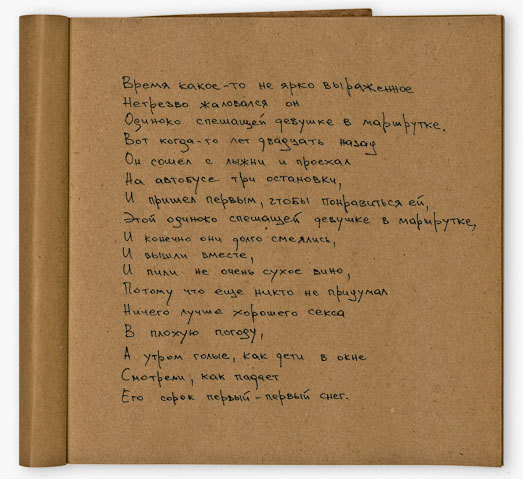 Время какое-то не ярко выраженное
Нетрезво жаловался он
Одиноко спешащей девушке в маршрутке.
Вот когда-то лет двадцать назад
Он сошел с лыжни и проехал
На автобусе три остановки,
И пришел первым, чтобы понравиться ей,
Этой одиноко спешащей девушке в маршрутке,
И конечно они долго смеялись,
И вышли вместе,
И пили не очень сухое вино,
Потому что еще никто не придумал
Ничего лучше хорошего секса
В плохую погоду,
А утром голые, как дети в окне
Смотрели, как падает
Его сорок первый-первый снег.